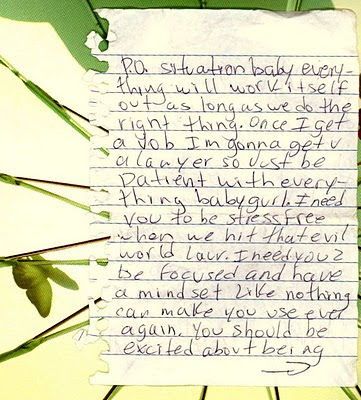 P.O. situation baby every-
thing will work itself
out as long as we do the
right thing. Once I get
a job Im gonna get u
a lawyer so Just be
patient with every-
thing babygurl. I need
you to be stress free
when we hit that evil
world luvr. I need you 2
be focused and have
a mindset like nothing
can make you use ever
again. You should be
excited about being